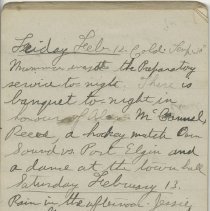 Friday Feb 12 Cold
the Preparatory
service to-night. There is
banquet to-night in
honour of Mc
Reeve a hockey match Owen
Sound vs Port Elgin and
a dance at the town hall
Saturday February 13.
Rain in the afternoon. Jessie